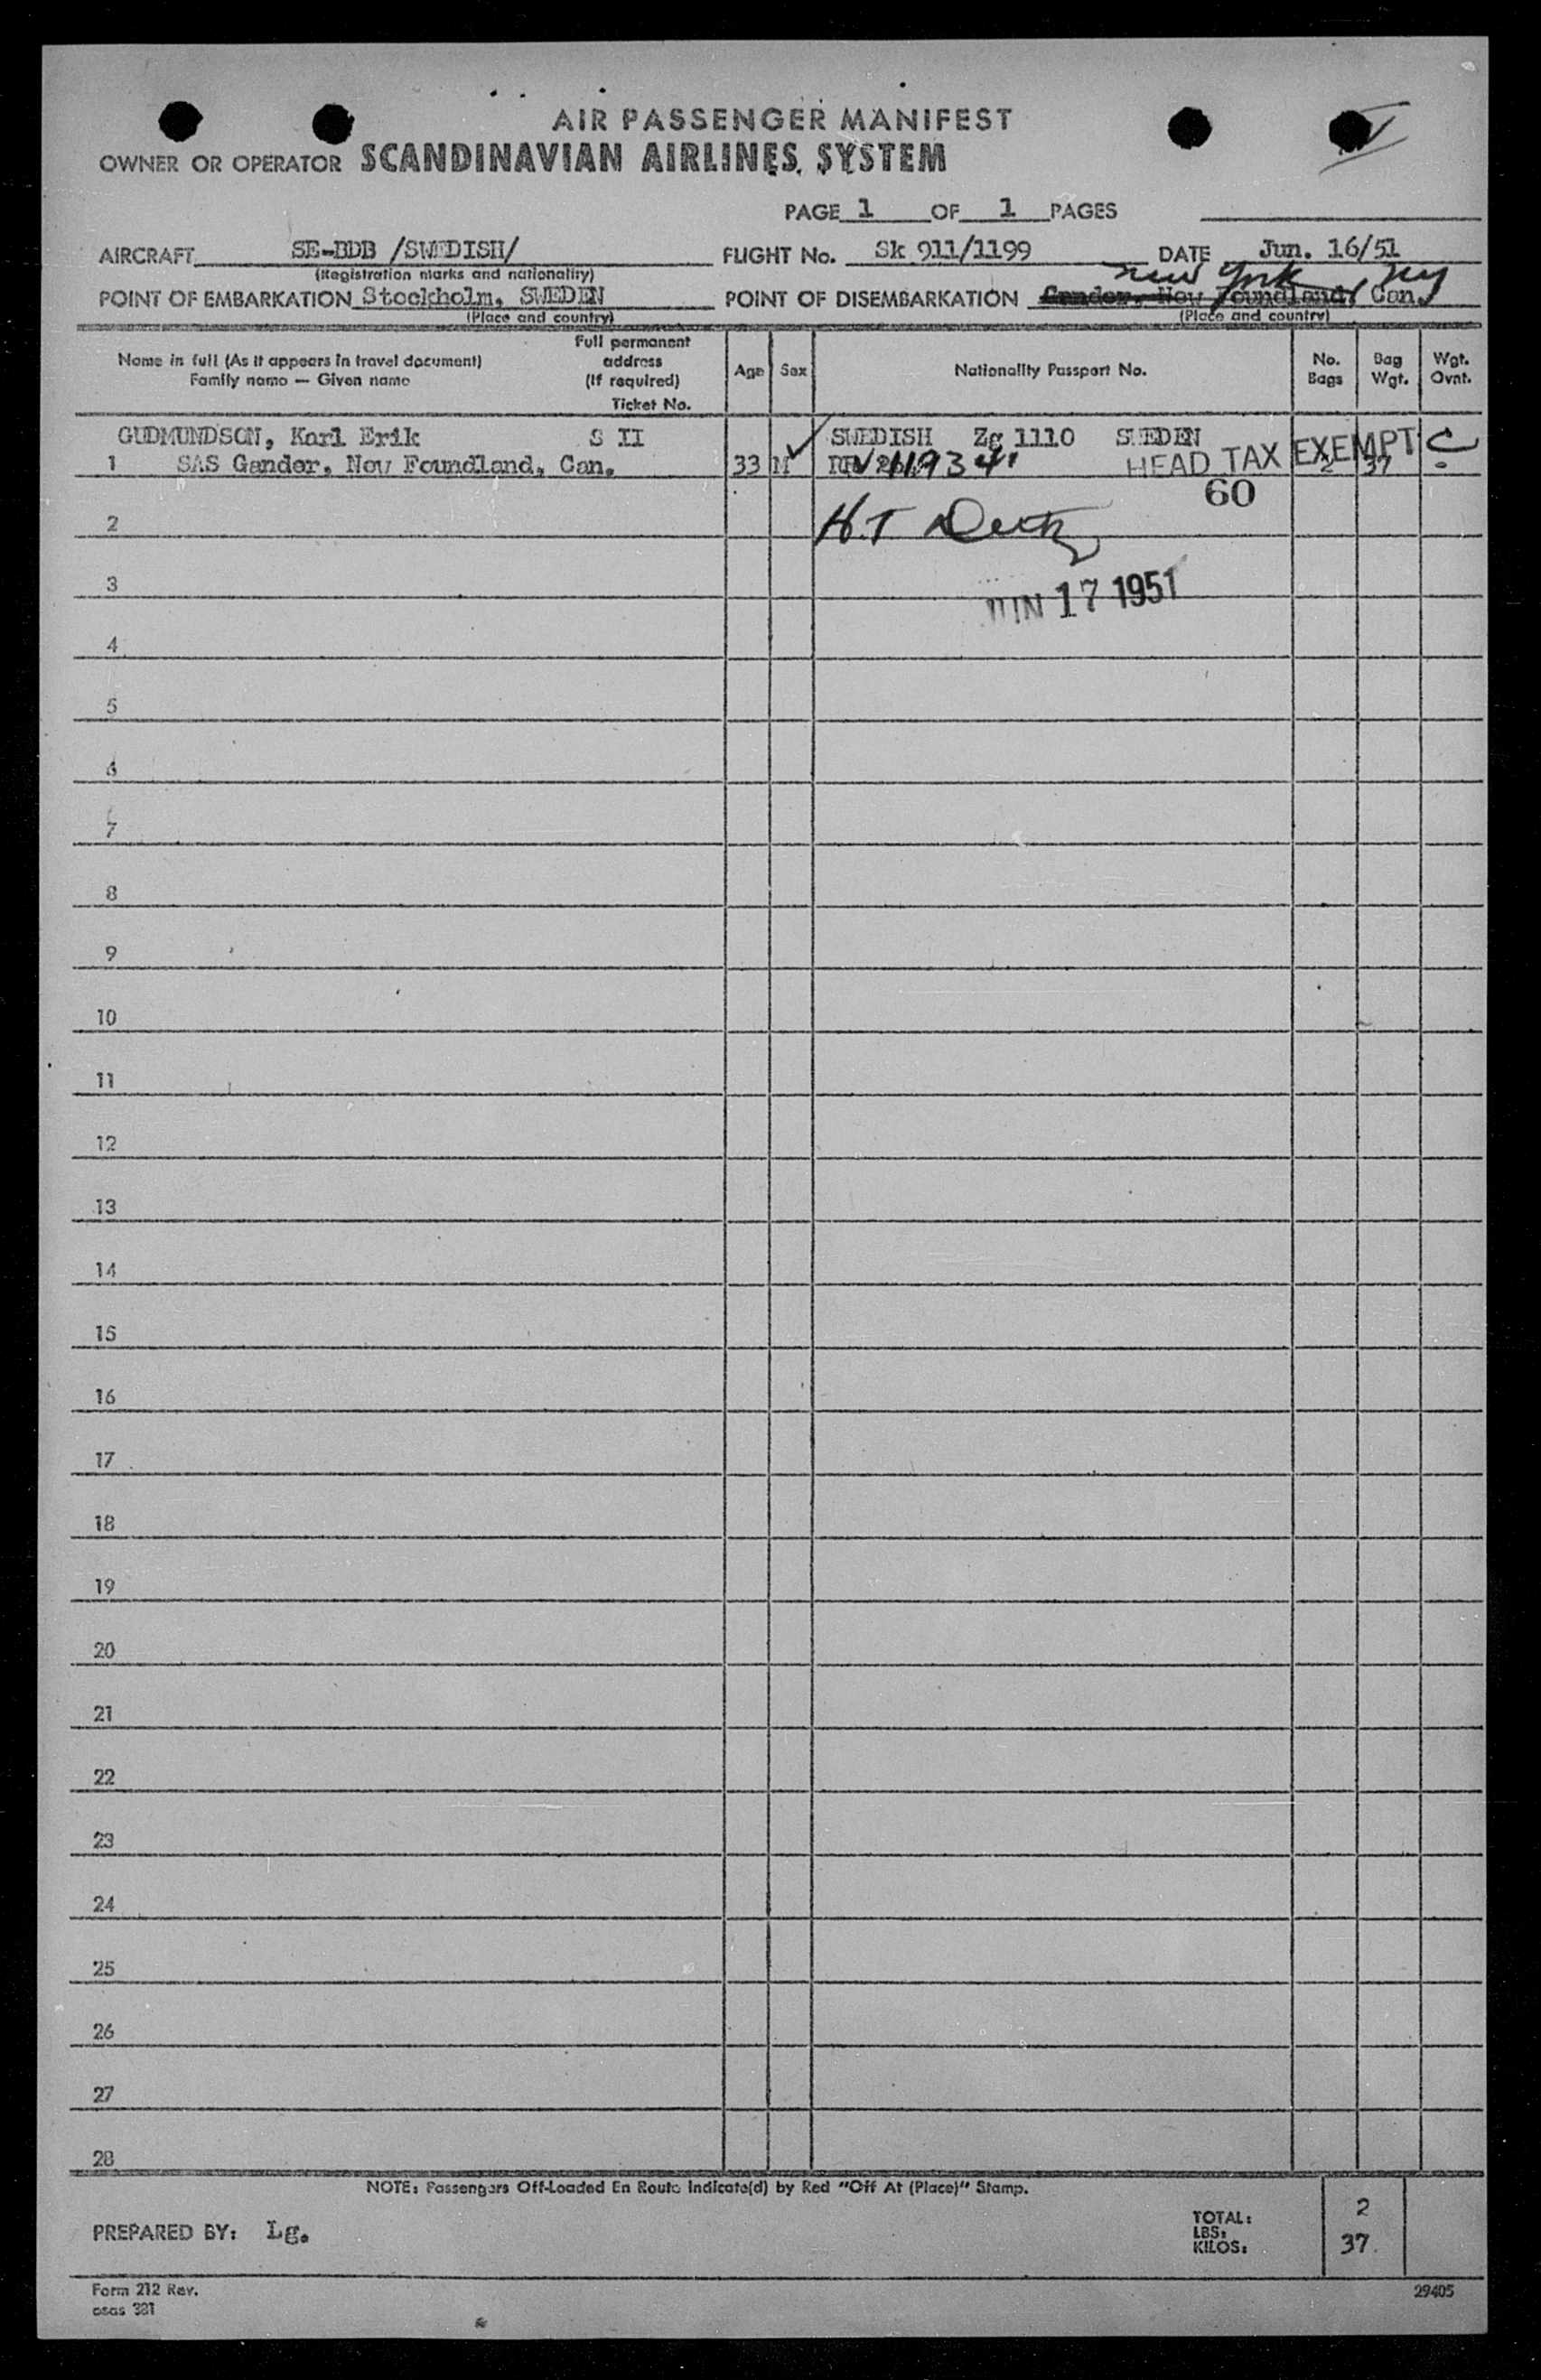 AIR PASSENGER MANIFEST
OWNER OR OPERATOR SCANDINAVIAN AIRLINES SYSTEM
PAGE 1 OF 1 PAGES
AIRCRAFT SE-BDB /SWEDISH/ FLIGHT No. Sk 911/1199 DATE Jun. 16/51
(Registration marks and nationality)
New York NY
POINT OF EMBARKATION Stockholm, SWEDEN POINT OF DISEMBARKATION Gander, New Foundland, Can.
(Place and country) (Place and country)
Name in full (As it appears in travel document)
Family name — Given name
Full permanent
address
(If required)
Ticket No.
Age
Sex
Nationality Passport No.
No.
Bags
Bag
Wgt.
Wgt.
Ovnt.
GUDMUNDSON, Karl Erik S II SWEDISH Zg 1110 SWEDEN
1 SAS Gander, New Foundland, Can. 33 M HEAD TAX EXEMPT C
2 37
60
2
H.T
3
JUN 17 1951
4
5
6
7
8
9
10
11
12
13
14
15
16
17
18
19
20
21
22
23
24
25
26
27
28
NOTE: Passengers Off-Loaded En Route Indicate(d) by Red "Off At (Place)" Stamp.
PREPARED BY: Lg.
TOTAL: 2
LBS:
KILOS: 37.
Form 212 Rev.
osas 381
29405